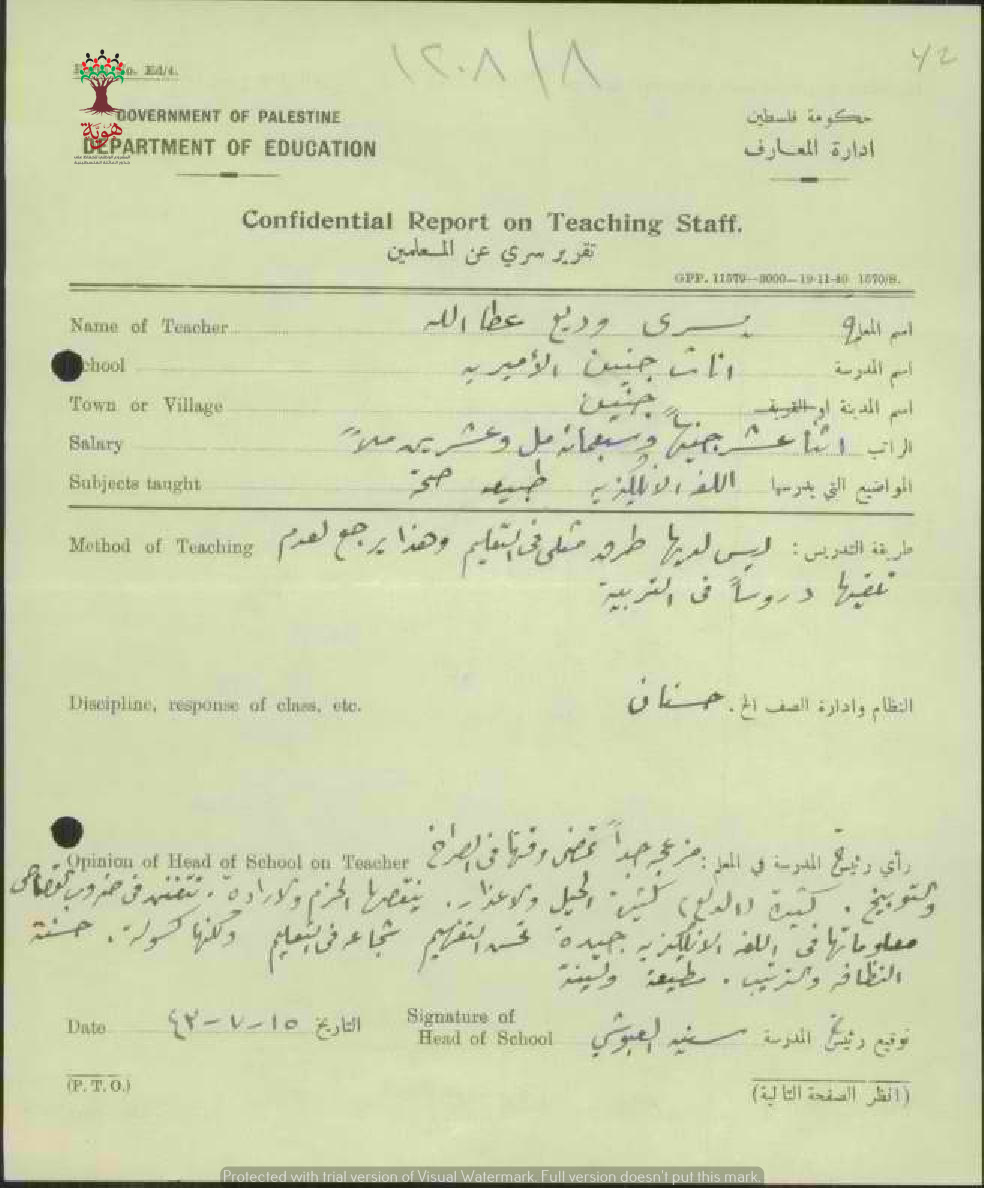 ١٢٠٨/٨
42
No. Ed/4.
GOVERNMENT OF PALESTINE
حكومة فلسطين
هوية
DEPARTMENT OF EDUCATION
ادارة المعارف
Confidential Report on Teaching Staff.
تقرير سري عن المعلمين
GPP. 11579—3000—19-11-40 1570/S.
Name of Teacher يسرى وديع عطا الله اسم المعلم
School اناث جنين الأميريه اسم المدرسة
Town or Village جنين اسم المدينة او القرية
Salary اثنا عشر جنيهاً وسبعمائة مل وعشرين ملاً الراتب
Subjects taught اللغه الانكليزيه طبيعه صحة المواضيع التي يدرسها
Method of Teaching طريقة التدريس: ليس لديها طرق مثلى في التعليم وهذا يرجع لعدم
تلقيها دروساً في التربية
Discipline, response of class, etc. النظام وادارة الصف الخ. حسنان
Opinion of Head of School on Teacher رأي رئيس المدرسة في المعلم: مزعجه جداً تمضي وقتها في الصراخ
والتوبيخ. كثيرة الحيل والاعذار. ينقصها الحزم والارادة. تتفنن في ضروب القصاص
معلوماتها في اللغه الانكليزيه جيدة تحسن التفهيم في التعليم ولكنها كسولة. حسنة
النظافه والترتيب. مطيعة ولينة
Date ١٥-٧-٤٢ التاريخ
Signature of
Head of School العبوشي توقيع رئيس المدرسة
(P. T. O.)
(انظر الصفحة التالية)
Protected with trial version of Visual Watermark. Full version doesn't put this mark.